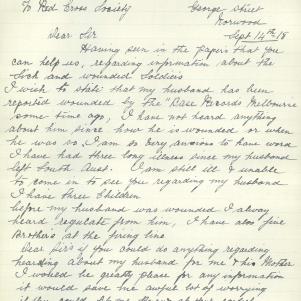 To Red Cross Society
George Street
Norwood
Sept 14th 18
Dear Sir
Having seen in the papers that you
can help us, regarding information about the
Sick and wounded Soldiers
I wish to state that my husband has been
reported wounded by the "Base Records Melbourne
some time ago, I have not heard anything
about him since how he is wounded or when
he was so, I am so very anxious to have word
I have had three long illness since my husband
left South Aust. I am still ill & unable
to come in to see you regarding my husband
I have three Children
before my husband was wounded I alway
heard regular from him, I have also five
Brothers at the firing line
Dear Sirs if you could do anything regarding
hearing about my husband for me & his Mother
I would be greatly please for any information
it would save me awful lot of worrying